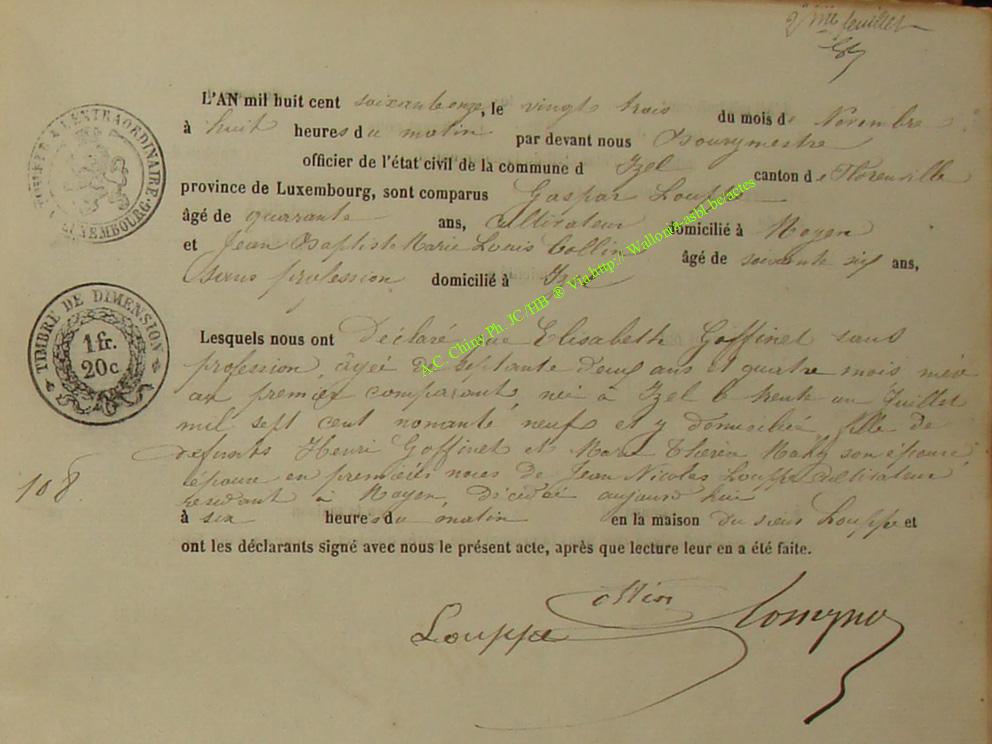 2me feuillet
TIMBRE A L'EXTRAORDINAIRE
LUXEMBOURG.
L'AN mil huit cent soixante onze, le vingt trois du mois de Novembre
à huit heures du matin par devant nous Bourgmestre
officier de l'état civil de la commune d Izel canton de Florenville
province de Luxembourg, sont comparus Gaspar Louppe
âgé de quarante ans, Cultivateur domicilié à Moyen
et Jean Baptiste Marie Louis Collin âgé de soixante six ans,
sans profession domicilié à Izel
A.C. Chiny Ph. JC/HB ® Via http://Wallonia-asbl.be/actes
TIMBRE DE DIMENSION
1 fr.
20c
Lesquels nous ont Déclaré que Elisabeth Goffinet sans
profession, âgée de septante deux ans et quatre mois, mère
au premier comparant, née à Izel le trente un Juillet
mil sept cent nonante neuf et y domiciliée, fille de
défunts Henri Goffinet et Marie Thérèse son épouse,
épouse en premières noces de Jean Nicolas Louppe cultivateur
résidant à Moyen, décédée aujourd'hui
108
à six heures du matin en la maison du sieur Louppe et
ont les déclarants signé avec nous le présent acte, après que lecture leur en a été faite.
Collin
Louppe